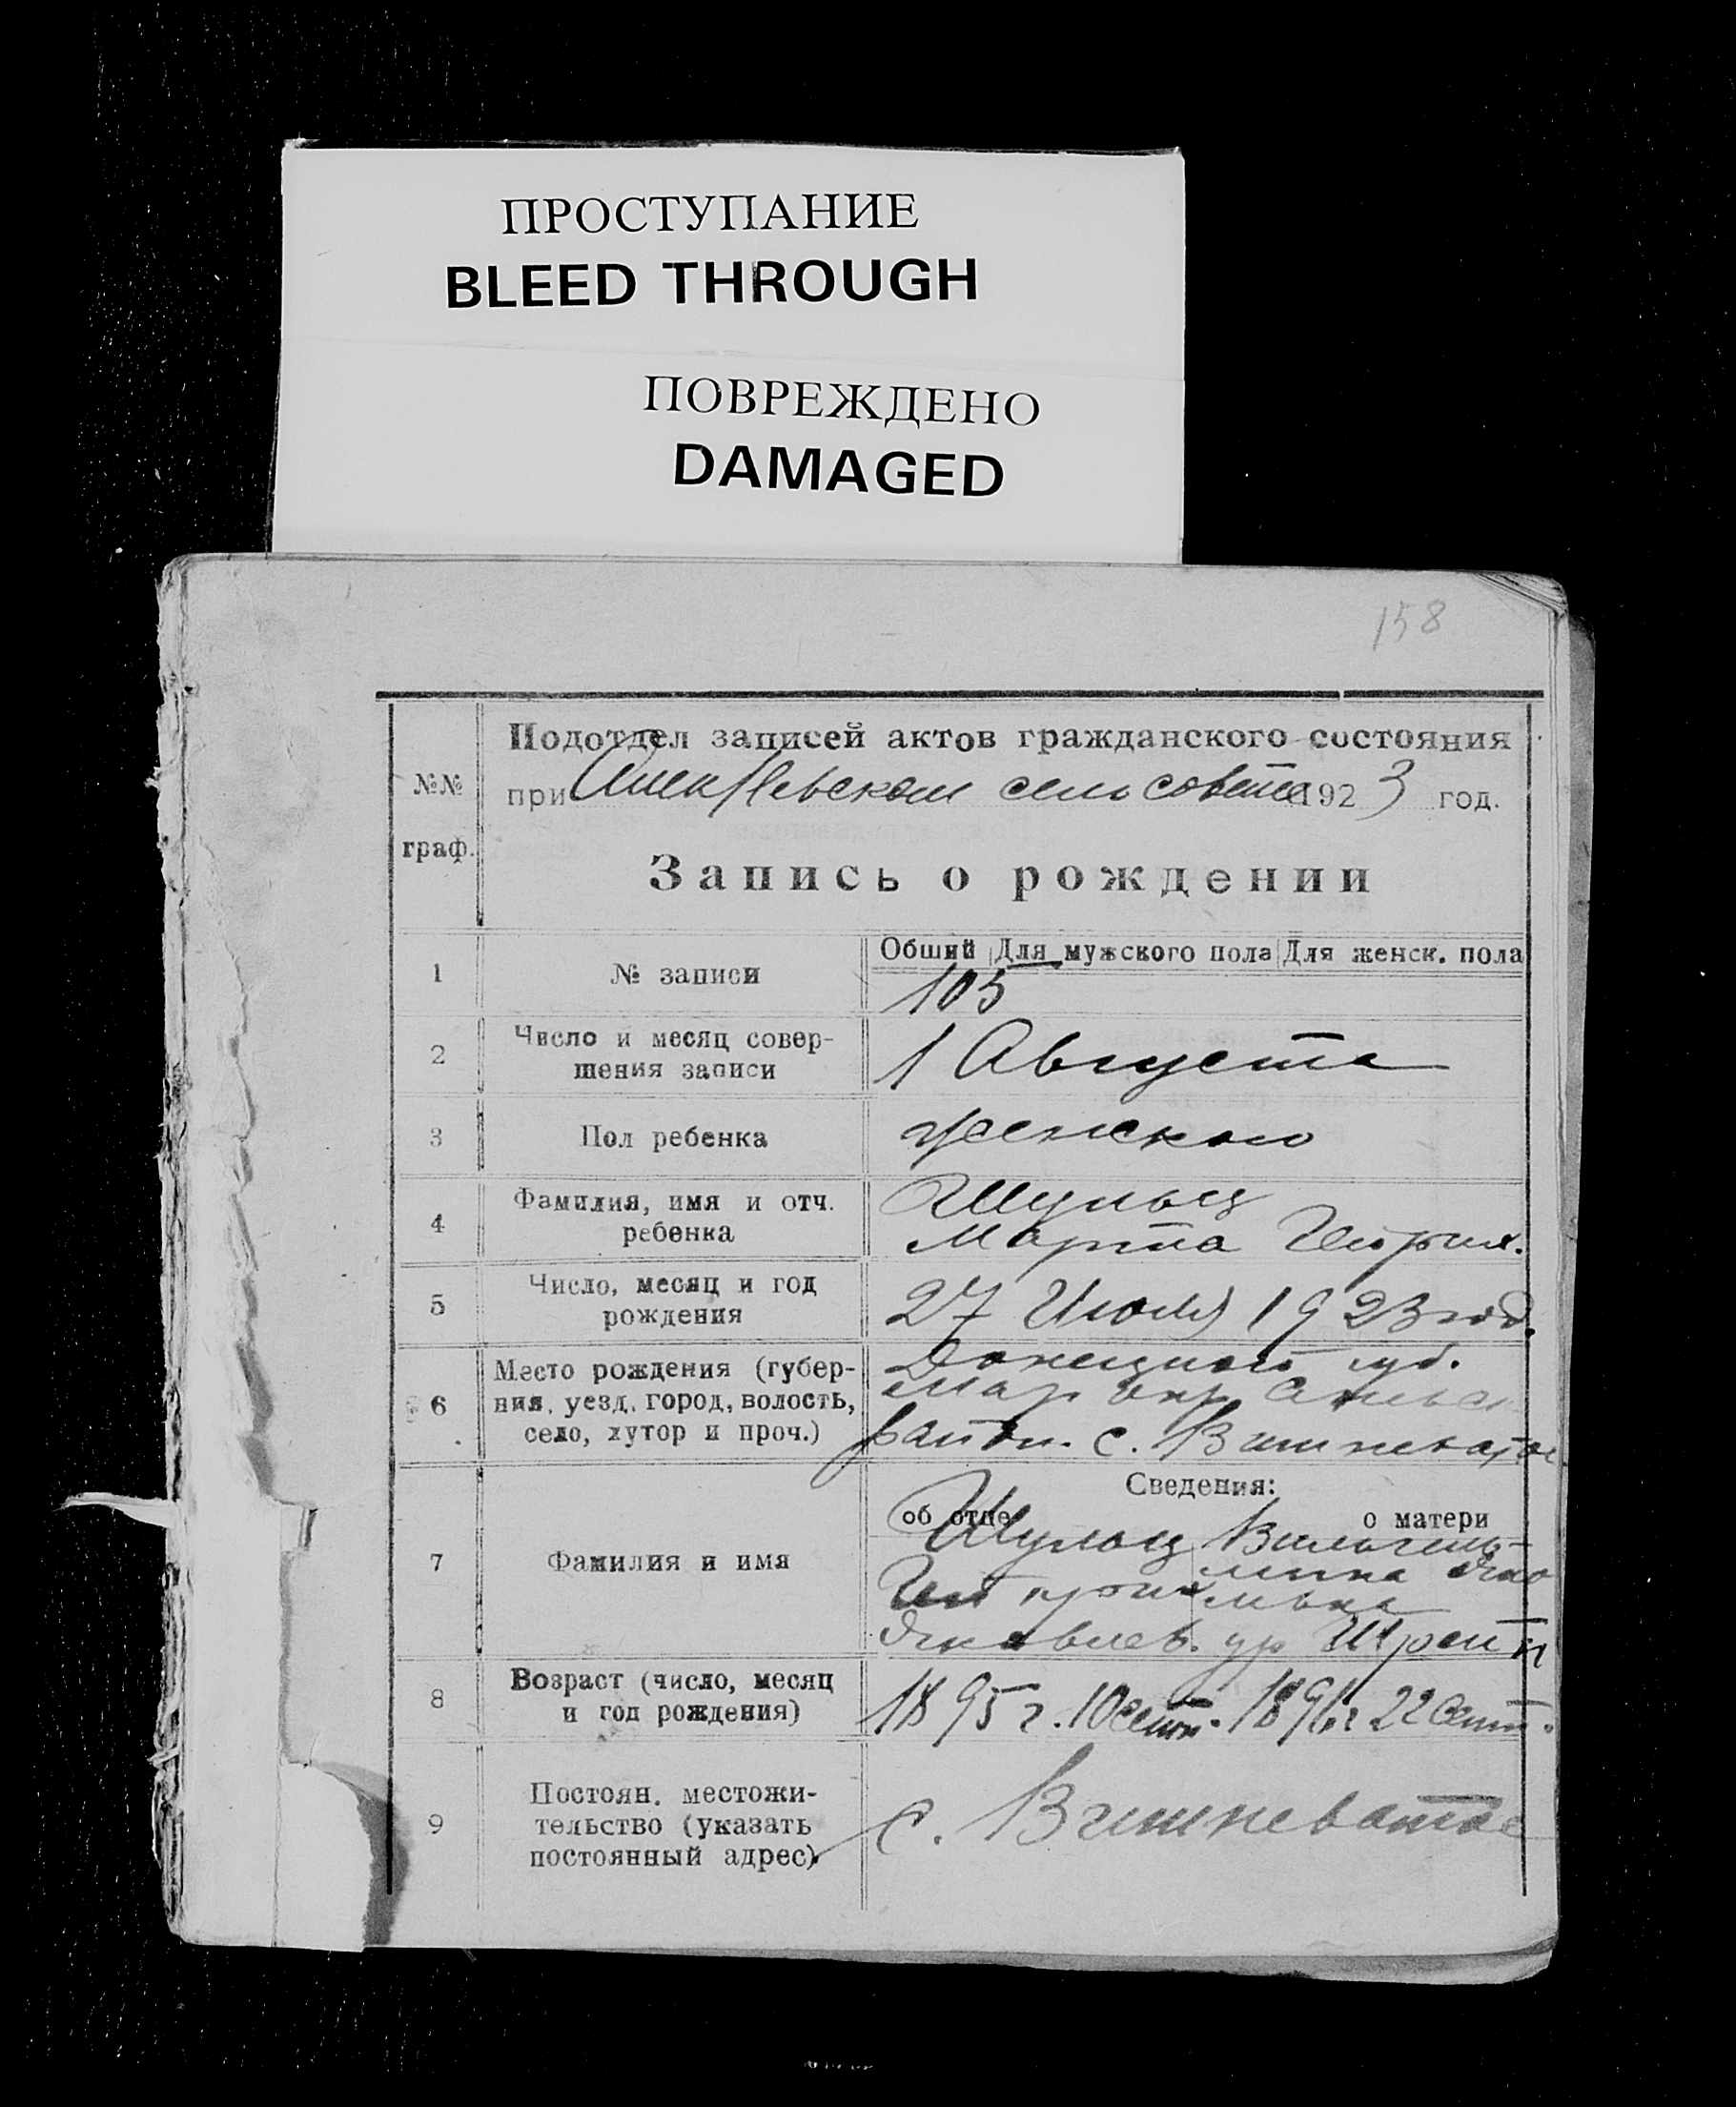 ПРОСТУПАНИЕ
BLEED THROUGH
ПОВРЕЖДЕНО
DAMAGED
158
Подотдел записей актов гражданского состояния
№№
при сельсовете 1923 год.
граф.
Запись о рождении
Общий Для мужского пола Для женск. пола
1 № записи 105
2 Число и месяц совер-
шения записи 1 Августа
3 Пол ребенка женского
4 Фамилия, имя и отч. Шульц
ребенка Марта
5 Число, месяц и год
рождения 27 Июля 1923 год.
6 Место рождения (губер- Донецкого губ.
ния, уезд, город, волость, Мар окр
село, хутор и проч.) район. с. Вишневатое
Сведения:
об отце о матери
7 Фамилия и имя Шульц Вильгель-
мина
Яковлев. ур
8 Возраст (число, месяц
и год рождения) 1895 г. 10 сент. 22 Сент.
9 Постоян. местожи-
тельство (указать с. Вишневатое
постоянный адрес)